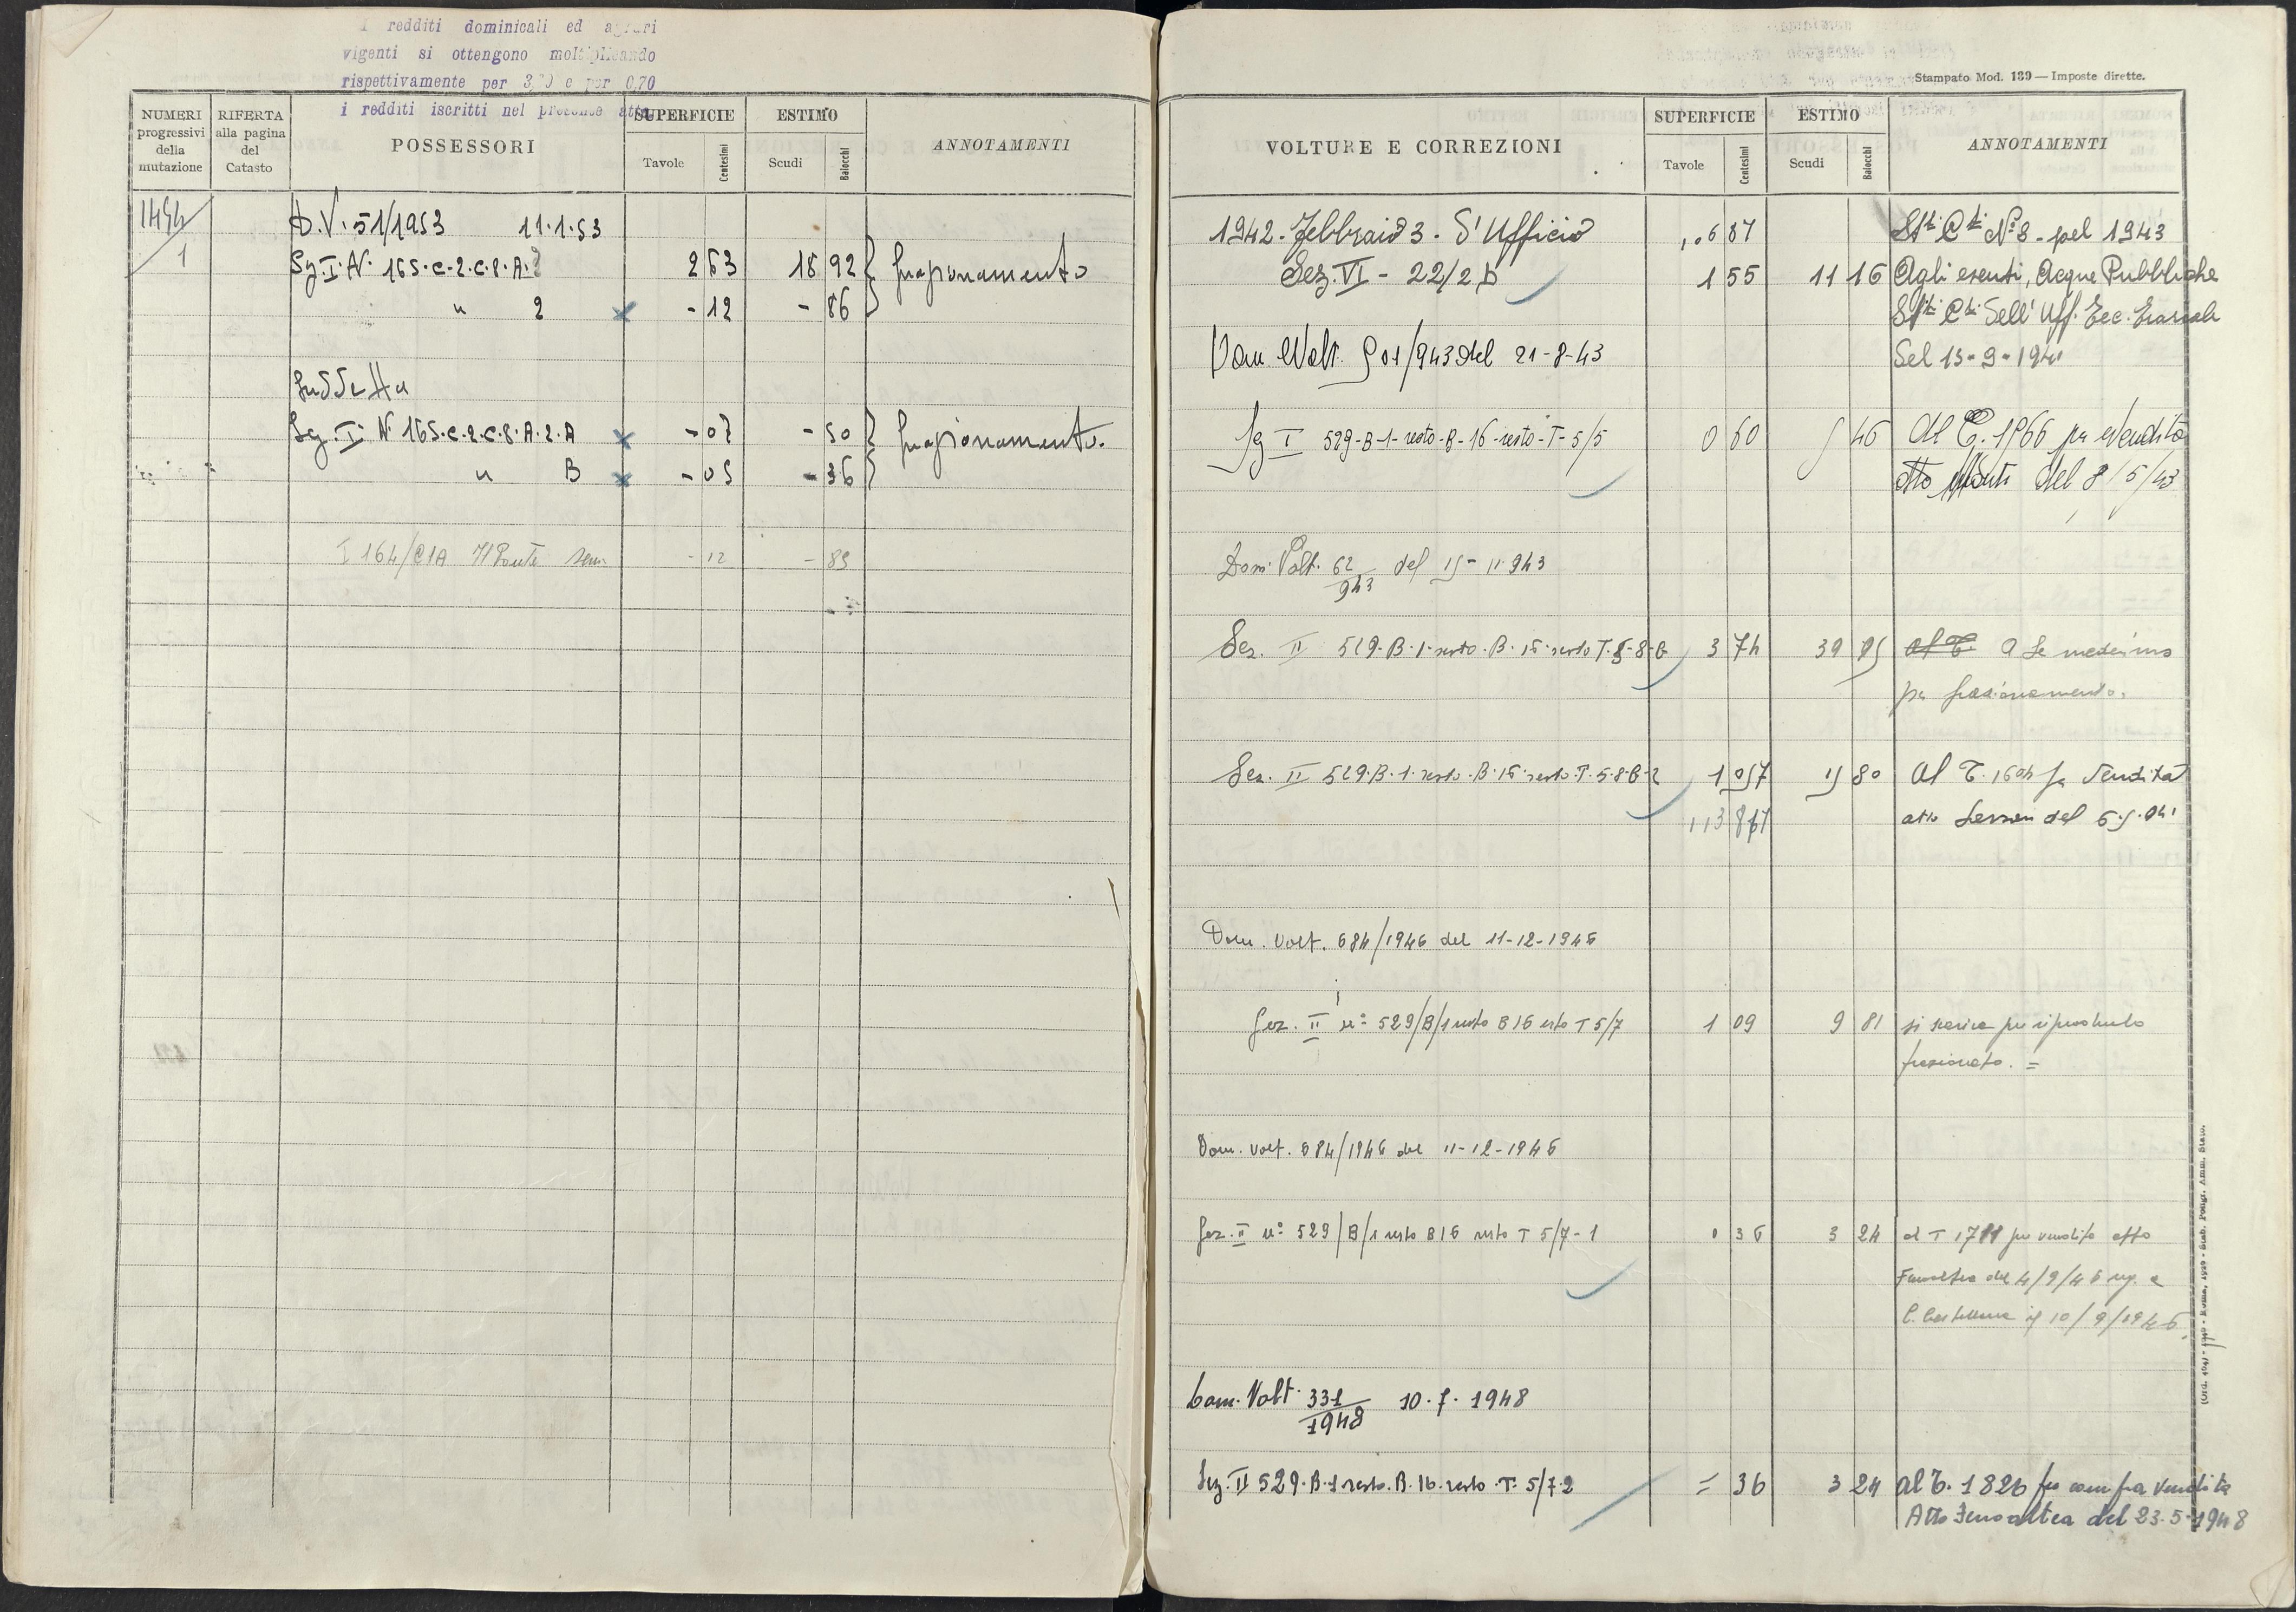 I redditi dominicali ed agrari
vigenti si ottengono moltiplicando
rispettivamente per e per 0,70
i redditi iscritti nel presente atto
NUMERI progressivi della mutazione
RIFERTA alla pagina del Catasto
POSSESSORI
SUPERFICIE
Tavole Centesimi
ESTIMO
Scudi Baiocchi
ANNOTAMENTI
1494
D.V. 51/1953 11.1.53
1 Sez. I N. 165.C.2.C.8.A. 2 63 18 92 frazionamento
" 2 - 12 - 86
Suddetta
Sez. I N 165.C.2.C.8.A.2.A - 07 - 50 frazionamento.
" B - 05 - 36
I 164/C1A - 12 - 89
Stampato Mod. 139 — Imposte dirette.
VOLTURE E CORREZIONI
SUPERFICIE
Tavole Centesimi
ESTIMO
Scudi Baiocchi
ANNOTAMENTI
1942. Febbraio 3. D'Ufficio 687 Sti Cti N° 8 - pel 1943
Sez. VI - 22/2 b 1 55 11 16 Agli esenti, Acque Pubbliche
Sti Cti dell' Uff. Tec. Erariale
del 15-9-1941
Dom. Volt. 501/943 del 21-8-43
Sez I 529-B-1-resto-B-16-resto-T-5/5 0 60 5 46 Al T. 1966 per vendita
atto Monti del 8/5/43
Dom. Volt. 62/943 del 15-11-943
Sez. II 529.B.1.resto.B.16.resto.T.5-8-B 3 74 39 95 A se medesimo
per frazionamento.
Sez. II 529.B.1.resto.B.16.resto.T.5.8.B-2 1 057 15 80 Al T. 1604 per vendita
113 867 atto del 6.5.941
Dom. volt. 684/1946 del 11-12-1946
Sez. II n° 529/B/1 resto B 16 resto T 5/7 1 09 9 81 si scarica per riprodurlo
frazionato. =
Dom. volt. 684/1946 del 11-12-1946
Sez. II n° 529/B/1 resto B 16 resto T 5/7-1 0 36 3 24 al T 1711 per vendita atto
Fenoaltea del 4/9/46 reg. a
C. Castellana il 10/9/1946.
Dom. Volt. 331/1948 10.7.1948
Sez. II 529.B.1 resto.B.16.resto.T.5/7.2 = 36 3 24 al T. 1826 per compra vendita
Atto Fenoaltea del 23.5.1948